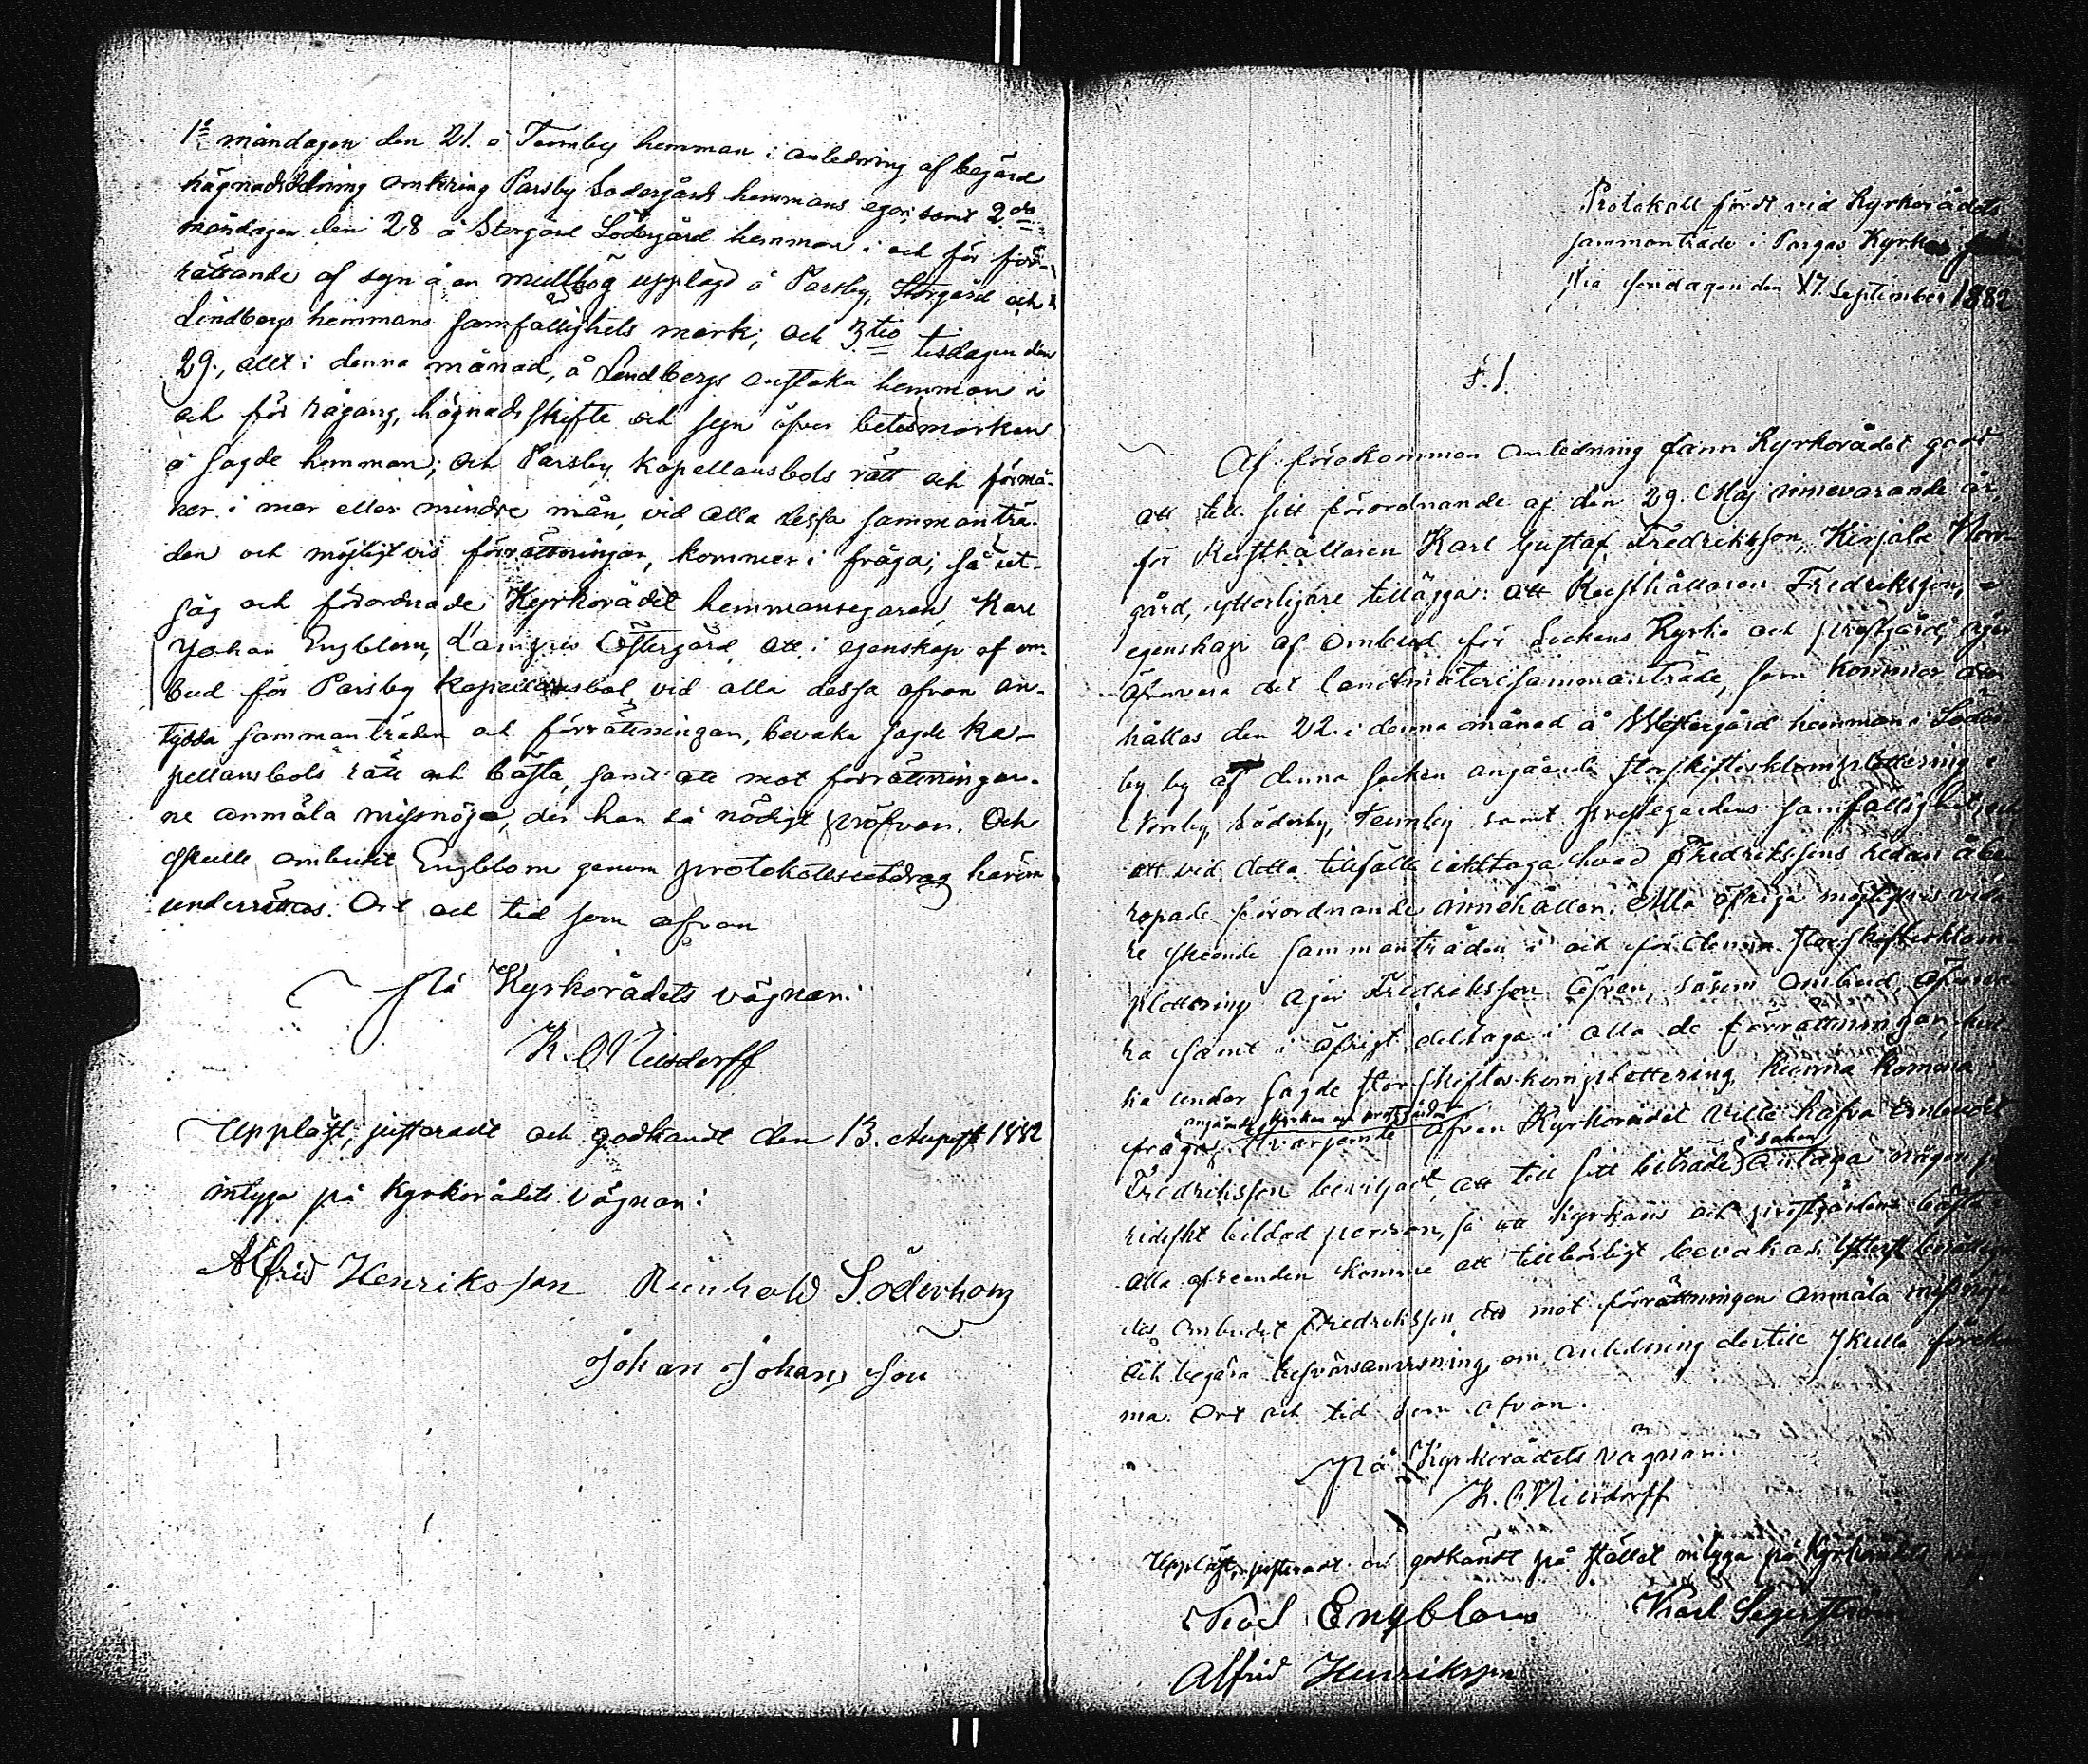 1:o måndagen den 21. å Tennby hemman i anledning af begärd
hägnadsdelning omkring Parsby Södergårds hemmans egor samt 2:do
måndagen den 28 å Storgård Södergård hemman i och för för-
rättande af syn å en mullhög upplagd å Parsby, Storgård och
Lindbergs hemmans samfällighets mark; och 3:tio tisdagen den
29., allt i denna månad, å Lindbergs enstaka hemman i
och för rågång, hägnadsskifte och syn öfver betesmarken
å sagde hemman; och Parsby kapellansbols rätt och förmå-
ner i mer eller mindre mån, vid alla dessa sammanträ-
den och möjligtvis förrättningar, kommer i fråga; så ut-
såg och förordnade Kyrkorådet hemmansegaren Karl
Johan Engblom, Lampis Östergård, att i egenskap af om-
bud för Parsby kapellansbol vid alla dessa ofvan an-
tydda sammanträden och förrättningar, bevaka sagde ka-
pellansbols rätt och bästa, samt att mot förrättningar-
ne anmäla missnöje, der han så nödigt pröfvar. Och
skulle ombudet Engblom genom protokollsutdrag härom
underrättas. Ort och tid som ofvan
På Kyrkorådets vägnar:
K. O. Neusdorff
Uppläst, justeradt och godkändt den 13. August 1882
intyga på Kyrkorådets vägnar:
Alfrid Henriksson Reinhold Söderholm
Johan Johansson
Protokoll fördt vid Kyrkorådets
sammanträde i Pargas Kyrkas
söndagen den 17. September 1882
§. 1.
Af förekommen anledning fann Kyrkorådet godt
att till sitt förordnande af den 29. Maj innevarande år,
för Rusthållaren Karl Gustaf Fredriksson, Kirjala Norr-
gård, ytterligare tillägga: att Rusthållaren Fredriksson, i
egenskap af ombud för Sockens Kyrka och prostgård, eger
öfvervara det landtmäterisammanträde, som kommer att
hållas den 22. i denna månad å Westergård hemman i Söder-
by by af denna socken angående storskifteskomplettering i
Norrby, Söderby, Tennby samt prestegårdens samfällighet, och
att vid detta tillfälle iakttaga hvad Fredrikssons redan åbe-
ropade förordnande innehåller. Alla öfriga möjligtvis vida-
re skeende sammanträden i och för denna storskifteskom-
plettering eger Fredriksson äfven, såsom ombud, öfverva-
ra samt i öfrigt deltaga i alla de förrättningar, hvil-
ka under sagde storskifteskomplettering kunna komma i
angående Kyrkan och prostgården
fråga. Hvarjemte äfven Kyrkorådet ville hafva ombudet
Fredriksson beviljadt, att till sitt biträde i saken antaga någon ju-
ridiskt bildad person, så att Kyrkans och prostgårdens bästa i
alla afseenden komme att tillbörligt bevakas. Ytterst berättiga-
des ombudet Fredriksson att mot förrättningen anmäla missnöje
och begära besvärsanvisning, om anledning dertill skulle förekom-
ma. Ort och tid som ofvan.
På Kyrkorådets vägnar:
K. O. Neusdorff
Uppläst, justeradt och godkändt på stället intyga på Kyrkorådets
Karl Engblom Karl Segerström
Alfrid Henriksson